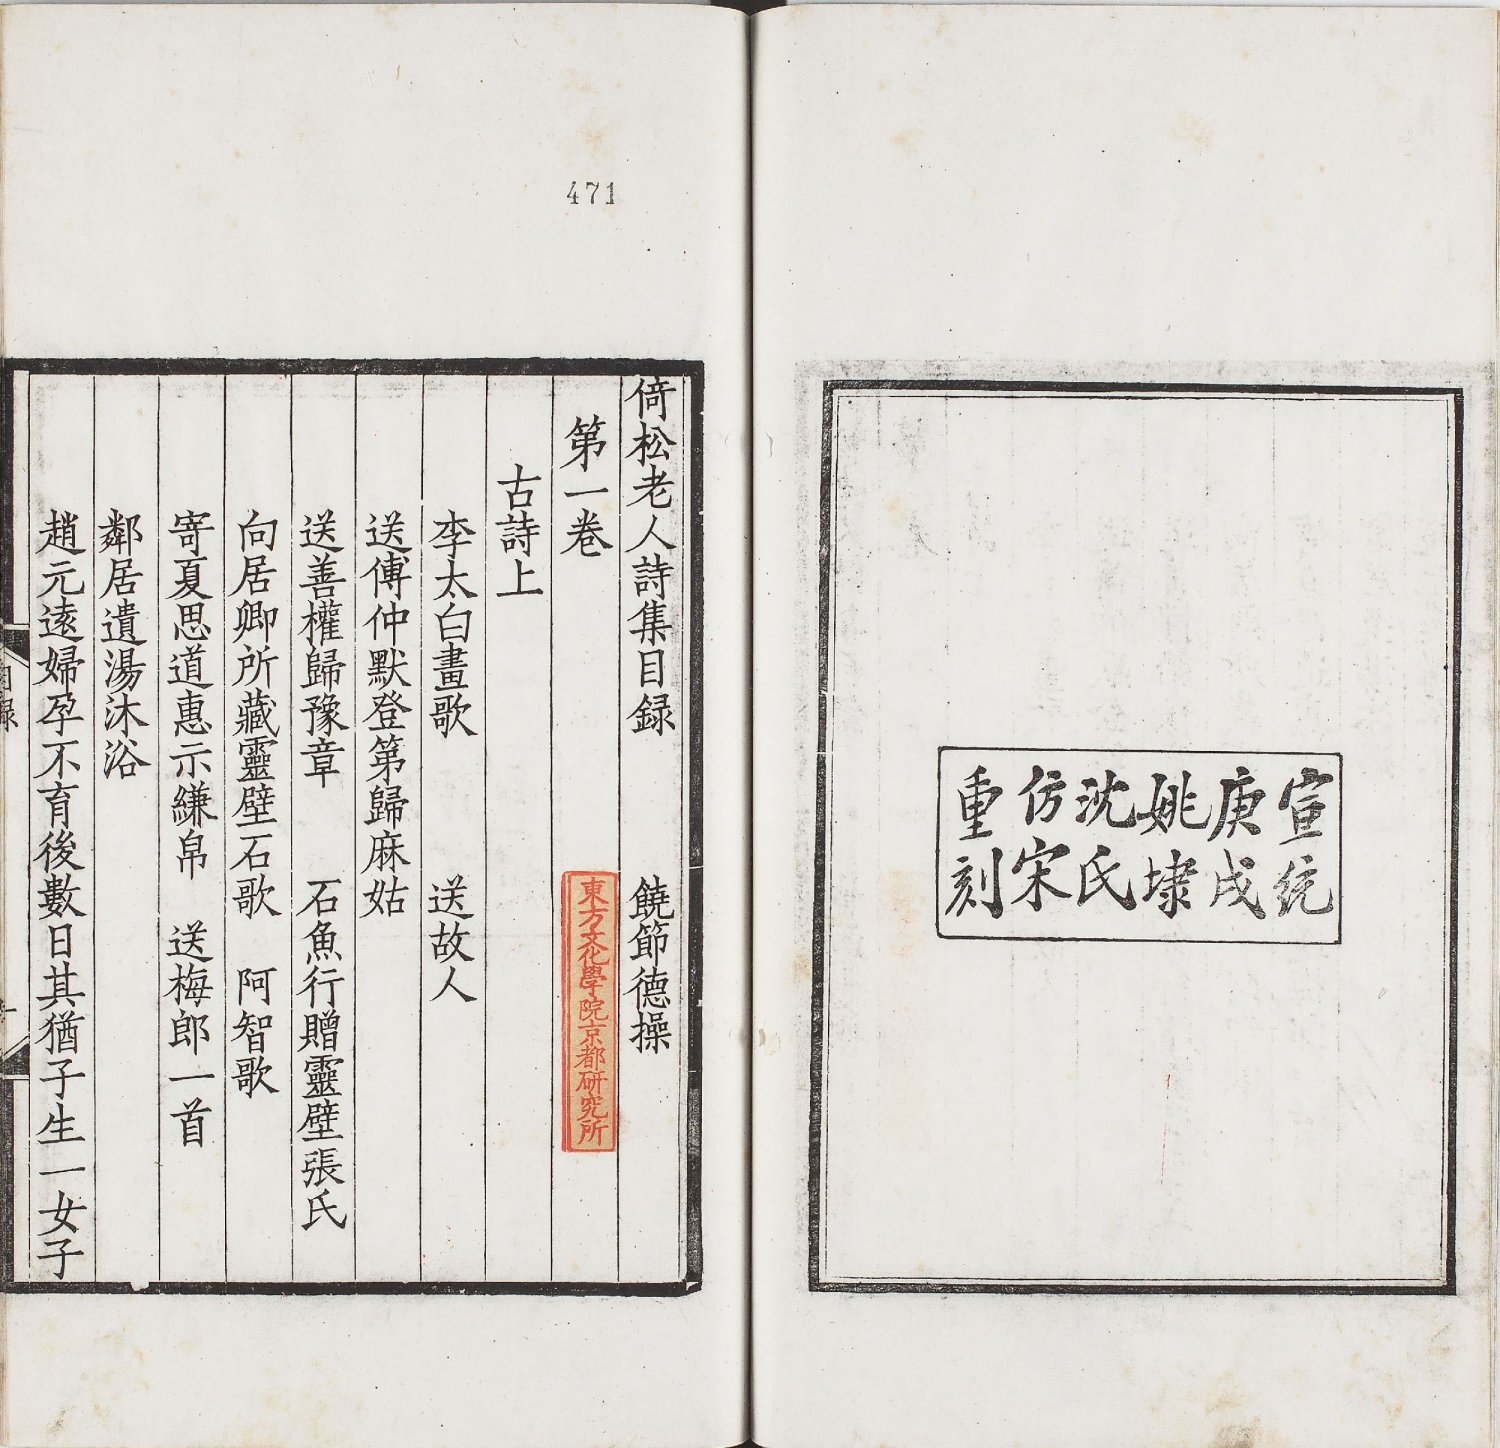 宣統
庚戌
姚埭
沈氏
仿宋
重刻
471
倚松老人詩集目録 饒節德操
第一卷
東方文化學院京都研究所
古詩上
李太白畫歌 送故人
送傅仲默登第歸麻姑
送善權歸豫章 石魚行贈靈壁張氏
向居卿所藏靈壁石歌 阿智歌
寄夏思道惠示縑帛 送梅郎一首
鄰居遺湯沐浴
趙元遠婦孕不育後數日其猶子生一女子
目録
一